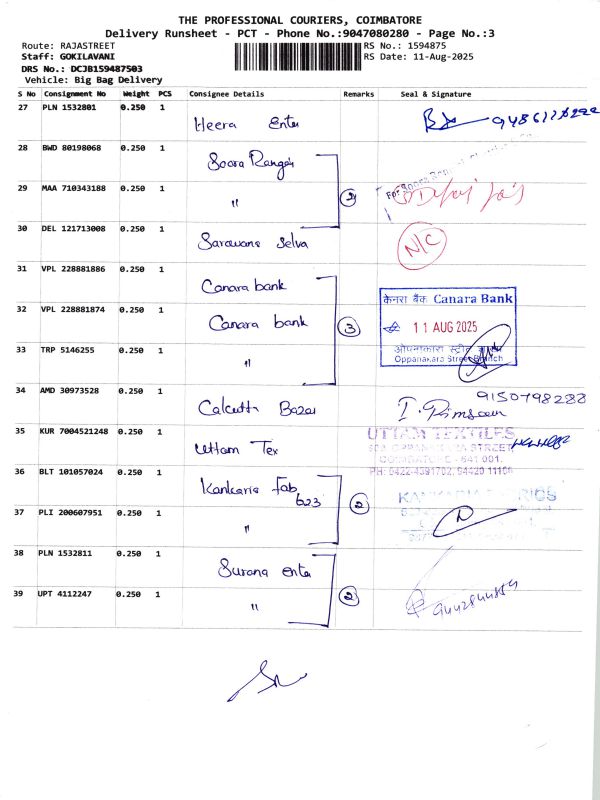 THE PROFESSIONAL COURIERS, COIMBATORE
Delivery Runsheet - PCT - Phone No.:9047080280 - Page No.:3
Route: RAJASTREET RS No.: 1594875
Staff: GOKILAVANI RS Date: 11-Aug-2025
DRS No.: DCJB159487503
Vehicle: Big Bag Delivery
S No Consignment No Weight PCS Consignee Details Remarks Seal & Signature
27 PLN 1532801 0.250 1 Heera Enter
28 BWD 80198068 0.250 1 Soora Ranges
29 MAA 710343188 0.250 1 " 2
30 DEL 121713008 0.250 1 Sarawana Selva N/C
31 VPL 228881886 0.250 1 Canara bank
केनरा बैंक Canara Bank
32 VPL 228881874 0.250 1 Canara bank 3 11 AUG 2025
33 TRP 5146255 0.250 1 "
ओपनाकारा स्ट्रीट
Oppanakara Street Branch
34 AMD 30973528 0.250 1 Calcutta Bazar 9150798288
35 KUR 7004521248 0.250 1 Uttam Tex
UTTAM TEXTILES
OPPANAKARA STREET,
COIMBATORE - 641 001.
PH: 0422-4391702, 94420 11106
36 BLT 101057024 0.250 1 Kankaria Fab 623 2
KANKARIA FABRICS
37 PLI 200607951 0.250 1 "
38 PLN 1532811 0.250 1 Surana enter
39 UPT 4112247 0.250 1 " 2